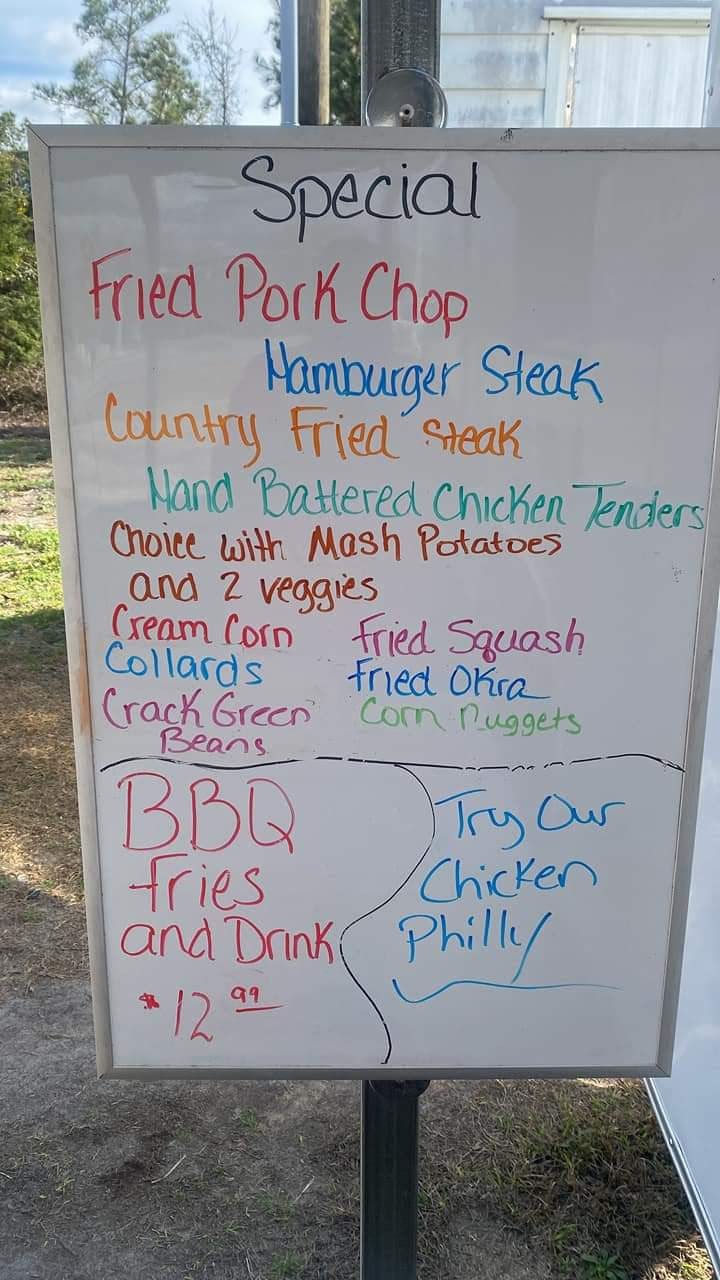 Special
Fried Pork Chop
Hamburger Steak
Country Fried Steak
Hand Battered Chicken Tenders
Choice with Mash Potatoes
and 2 veggies
Cream Corn
Fried Squash
Collards
Fried Okra
Crack Green
Beans
Corn Nuggets
BBQ
Fries
and Drink
$12.99
Try Our
Chicken
Philly